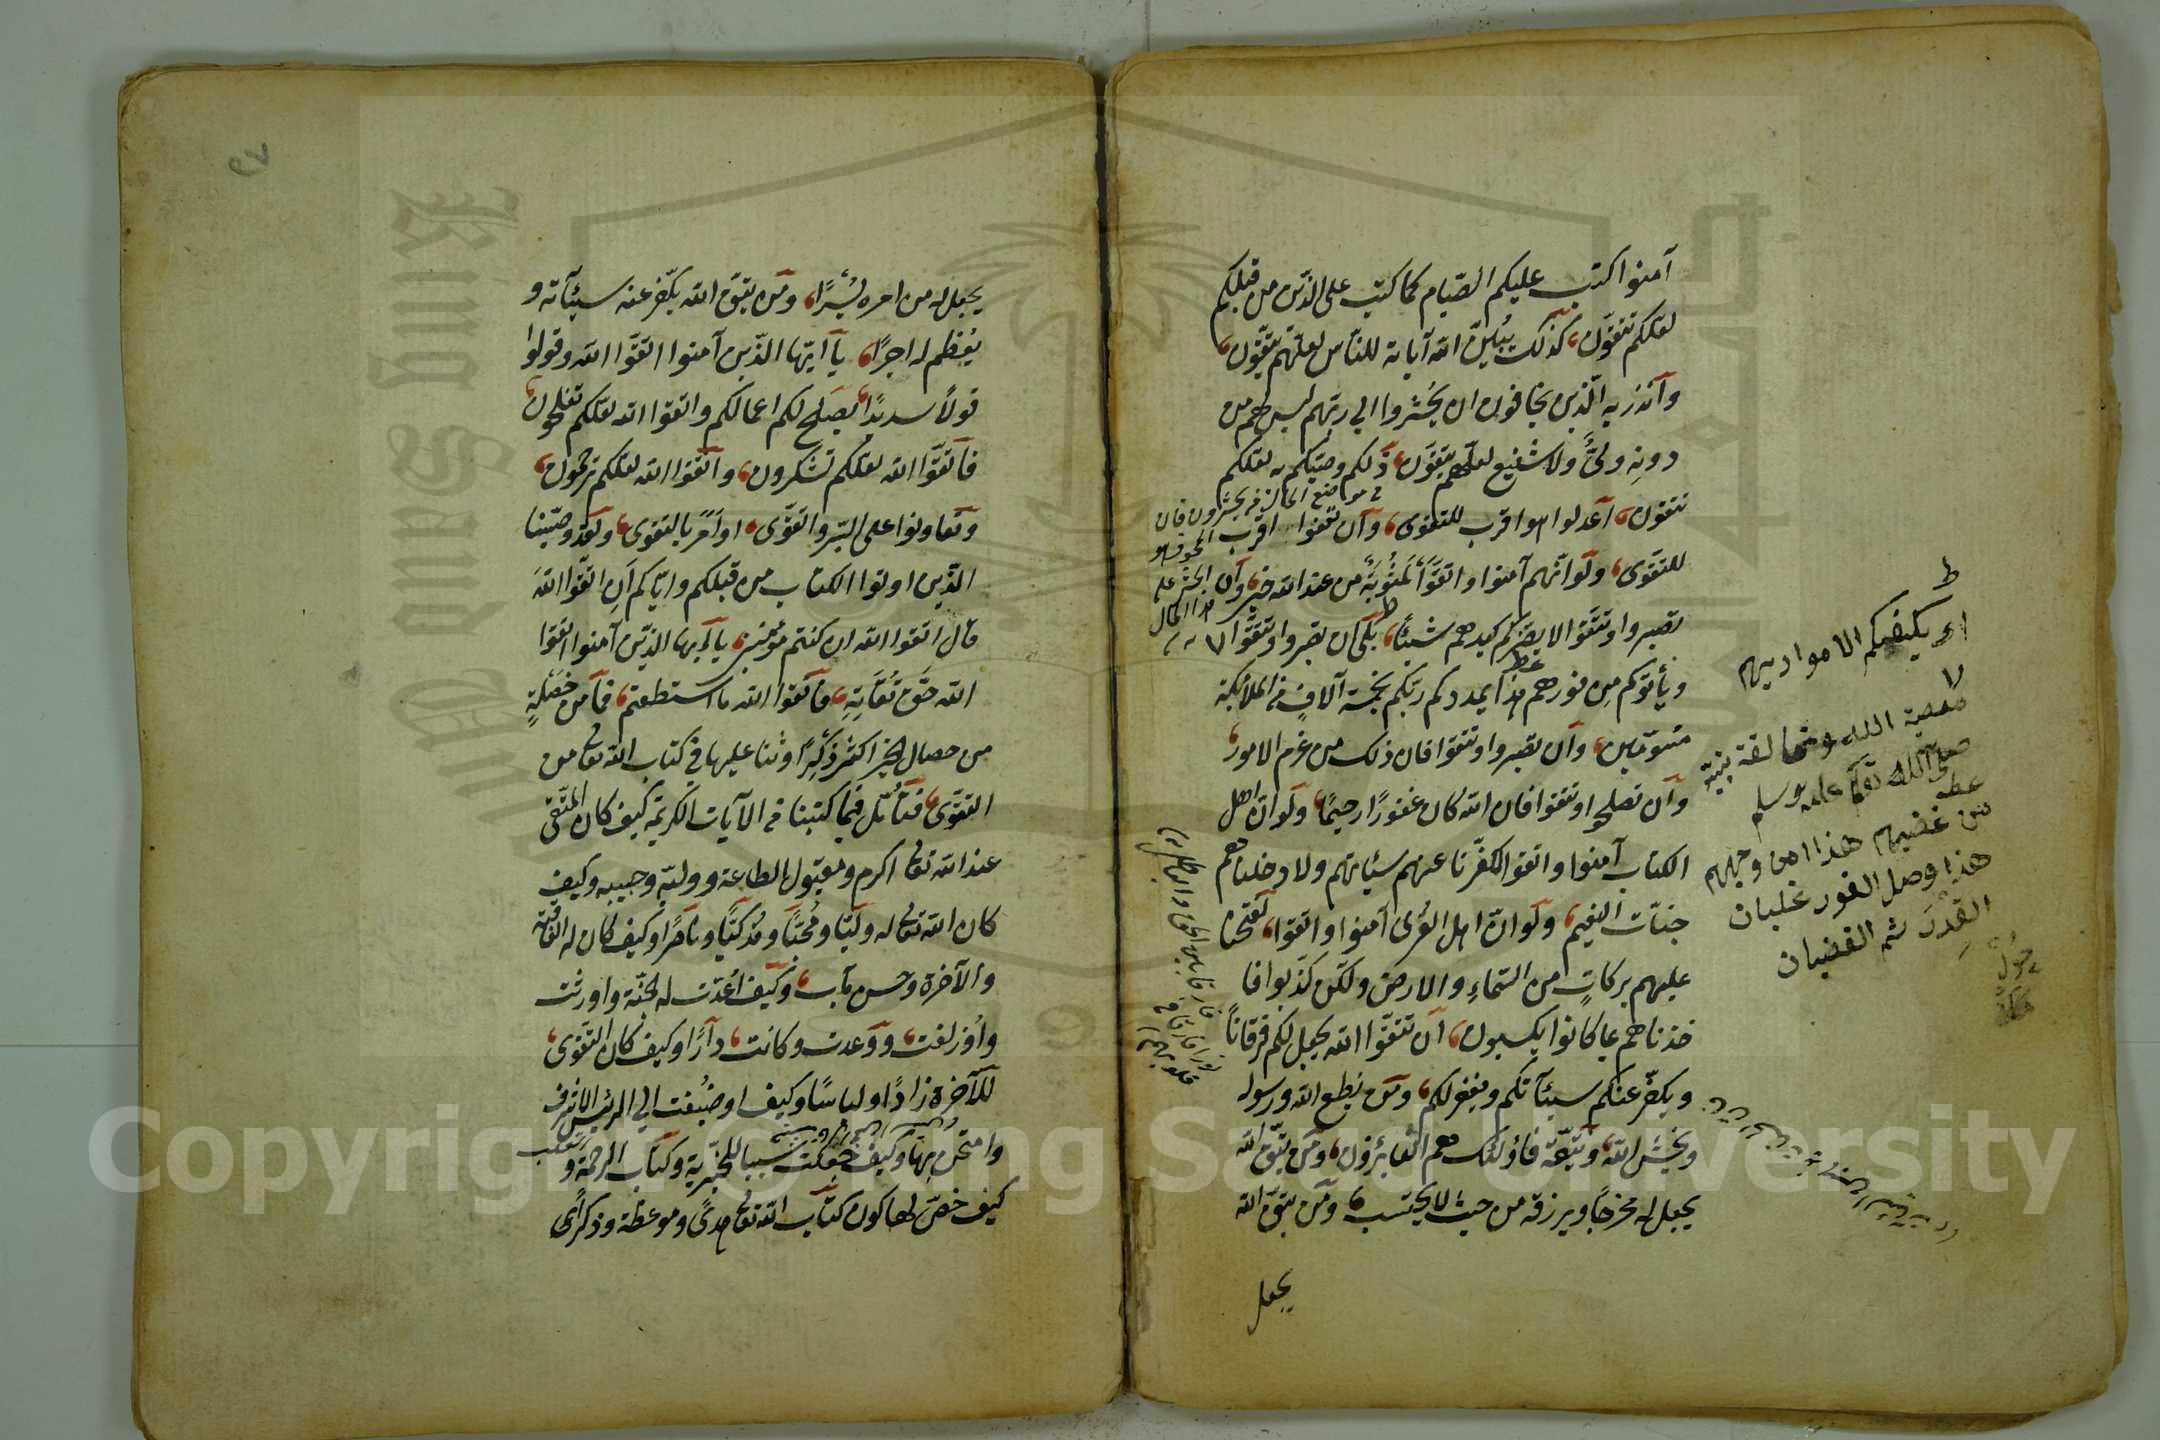 آمنوا كتب عليكم الصيام كما كتب على الذين من قبلكم
لعلكم تتقون، كذلك يبين الله آياته للناس لعلهم يتقون،
وأنذر به الذين يخافون ان يحشروا الى ربهم ليس لهم من
دونه ولي ولا شفيع لعلهم يتقون، ذلكم وصيكم به لعلكم
تتقون، أعدلوا هو اقرب للتقوى، وأن تعفوا اقرب
للتقوى، ولو انهم آمنوا واتقوا لمثوبة من عند الله خير، وأن
تصبروا وتتقوا لا يضركم كيدهم شيئا، بلى ان تصبروا وتتقوا
ويأتوكم من فورهم هذا يمددكم ربكم بخمسة آلاف من الملائكة
مسومين، وأن تصبروا وتتقوا فان ذلك من عزم الامور،
وأن تصلحوا وتتقوا فان الله كان غفورا رحيما، ولو ان اهل
الكتاب آمنوا واتقوا لكفرنا عنهم سيئاتهم ولادخلناهم
جنات النعيم، ولو ان اهل القرى آمنوا واتقوا، لفتحنا
عليهم بركات من السماء والارض ولكن كذبوا فا
خذناهم بما كانوا يكسبون، ان تتقوا الله يجعل لكم فرقانا
ويكفر عنكم سيئاتكم ويغفر لكم، ومن يطع الله ورسوله
ويخش الله ويتقه فاولئك هم الفائزون، ومن يتق الله
يجعل له مخرجا ويرزقه من حيث لا يحتسب، ومن يتق الله
يجعل
معصية الله ومخالفة نبيه
صلى الله تعالى عليه وسلم
من غضبهم هذا او من وجههم
هذا وصل الفور غليان
القدر ثم الغضبان
يجعل له من امره يسرا، ومن يتق الله يكفر عنه سيئآته و
يعظم له اجرا، يآ ايها الذين آمنوا اتقوا الله وقولوا
قولا سديدا، يصلح لكم اعمالكم واتقوا الله لعلكم تفلحون،
فاتقوا الله لعلكم تشكرون، واتقوا الله لعلكم ترحمون،
وتعاونوا على البر والتقوى، او أمر بالتقوى، ولقد وصينا
الذين اوتوا الكتاب من قبلكم واياكم أن اتقوا الله
قال اتقوا الله ان كنتم مؤمنين، يا ايها الذين آمنوا اتقوا
الله حق تقاته، فاتقوا الله ما استطعتم، فما من خصلة
من خصال الخير اكثر ذكرا وثنا عليها فى كتاب الله تعالى من
التقوى، فتأمل فيما كتبنا من الآيات الكريمة كيف كان المتقى
عند الله تعالى اكرم ومقبول الطاعة ووليه وحبيبه وكيف
كان الله تعالى له وليا ومحبا ومزكيا وناصرا وكيف كان له العاقبة
والآخرة وحسن مآب، وكيف أعدت له الجنة واورثت
وأزلفت، ووعدت وكانت، دارا وكيف كان التقوى،
للآخرة زادا ولباسا وكيف اوضيفت الى الرئيس الاشرف
وامتحن بها وكيف جعلت سببا للخيرية وكتاب الرحمة و
كيف خص لها كون كتاب الله تعالى هدى وموعظة وذكرى
Copyright © King Saud University
King Saud University